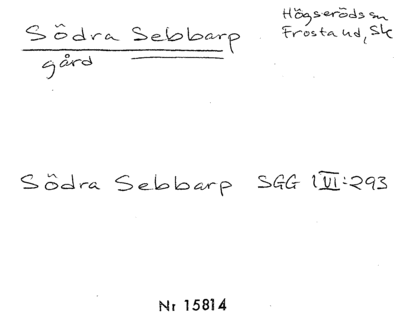 Södra Sebbarp
gård
Högseröds sn
Frosta hd, Sk
Södra Sebbarp SGG 1 VI:293
Nr 15814